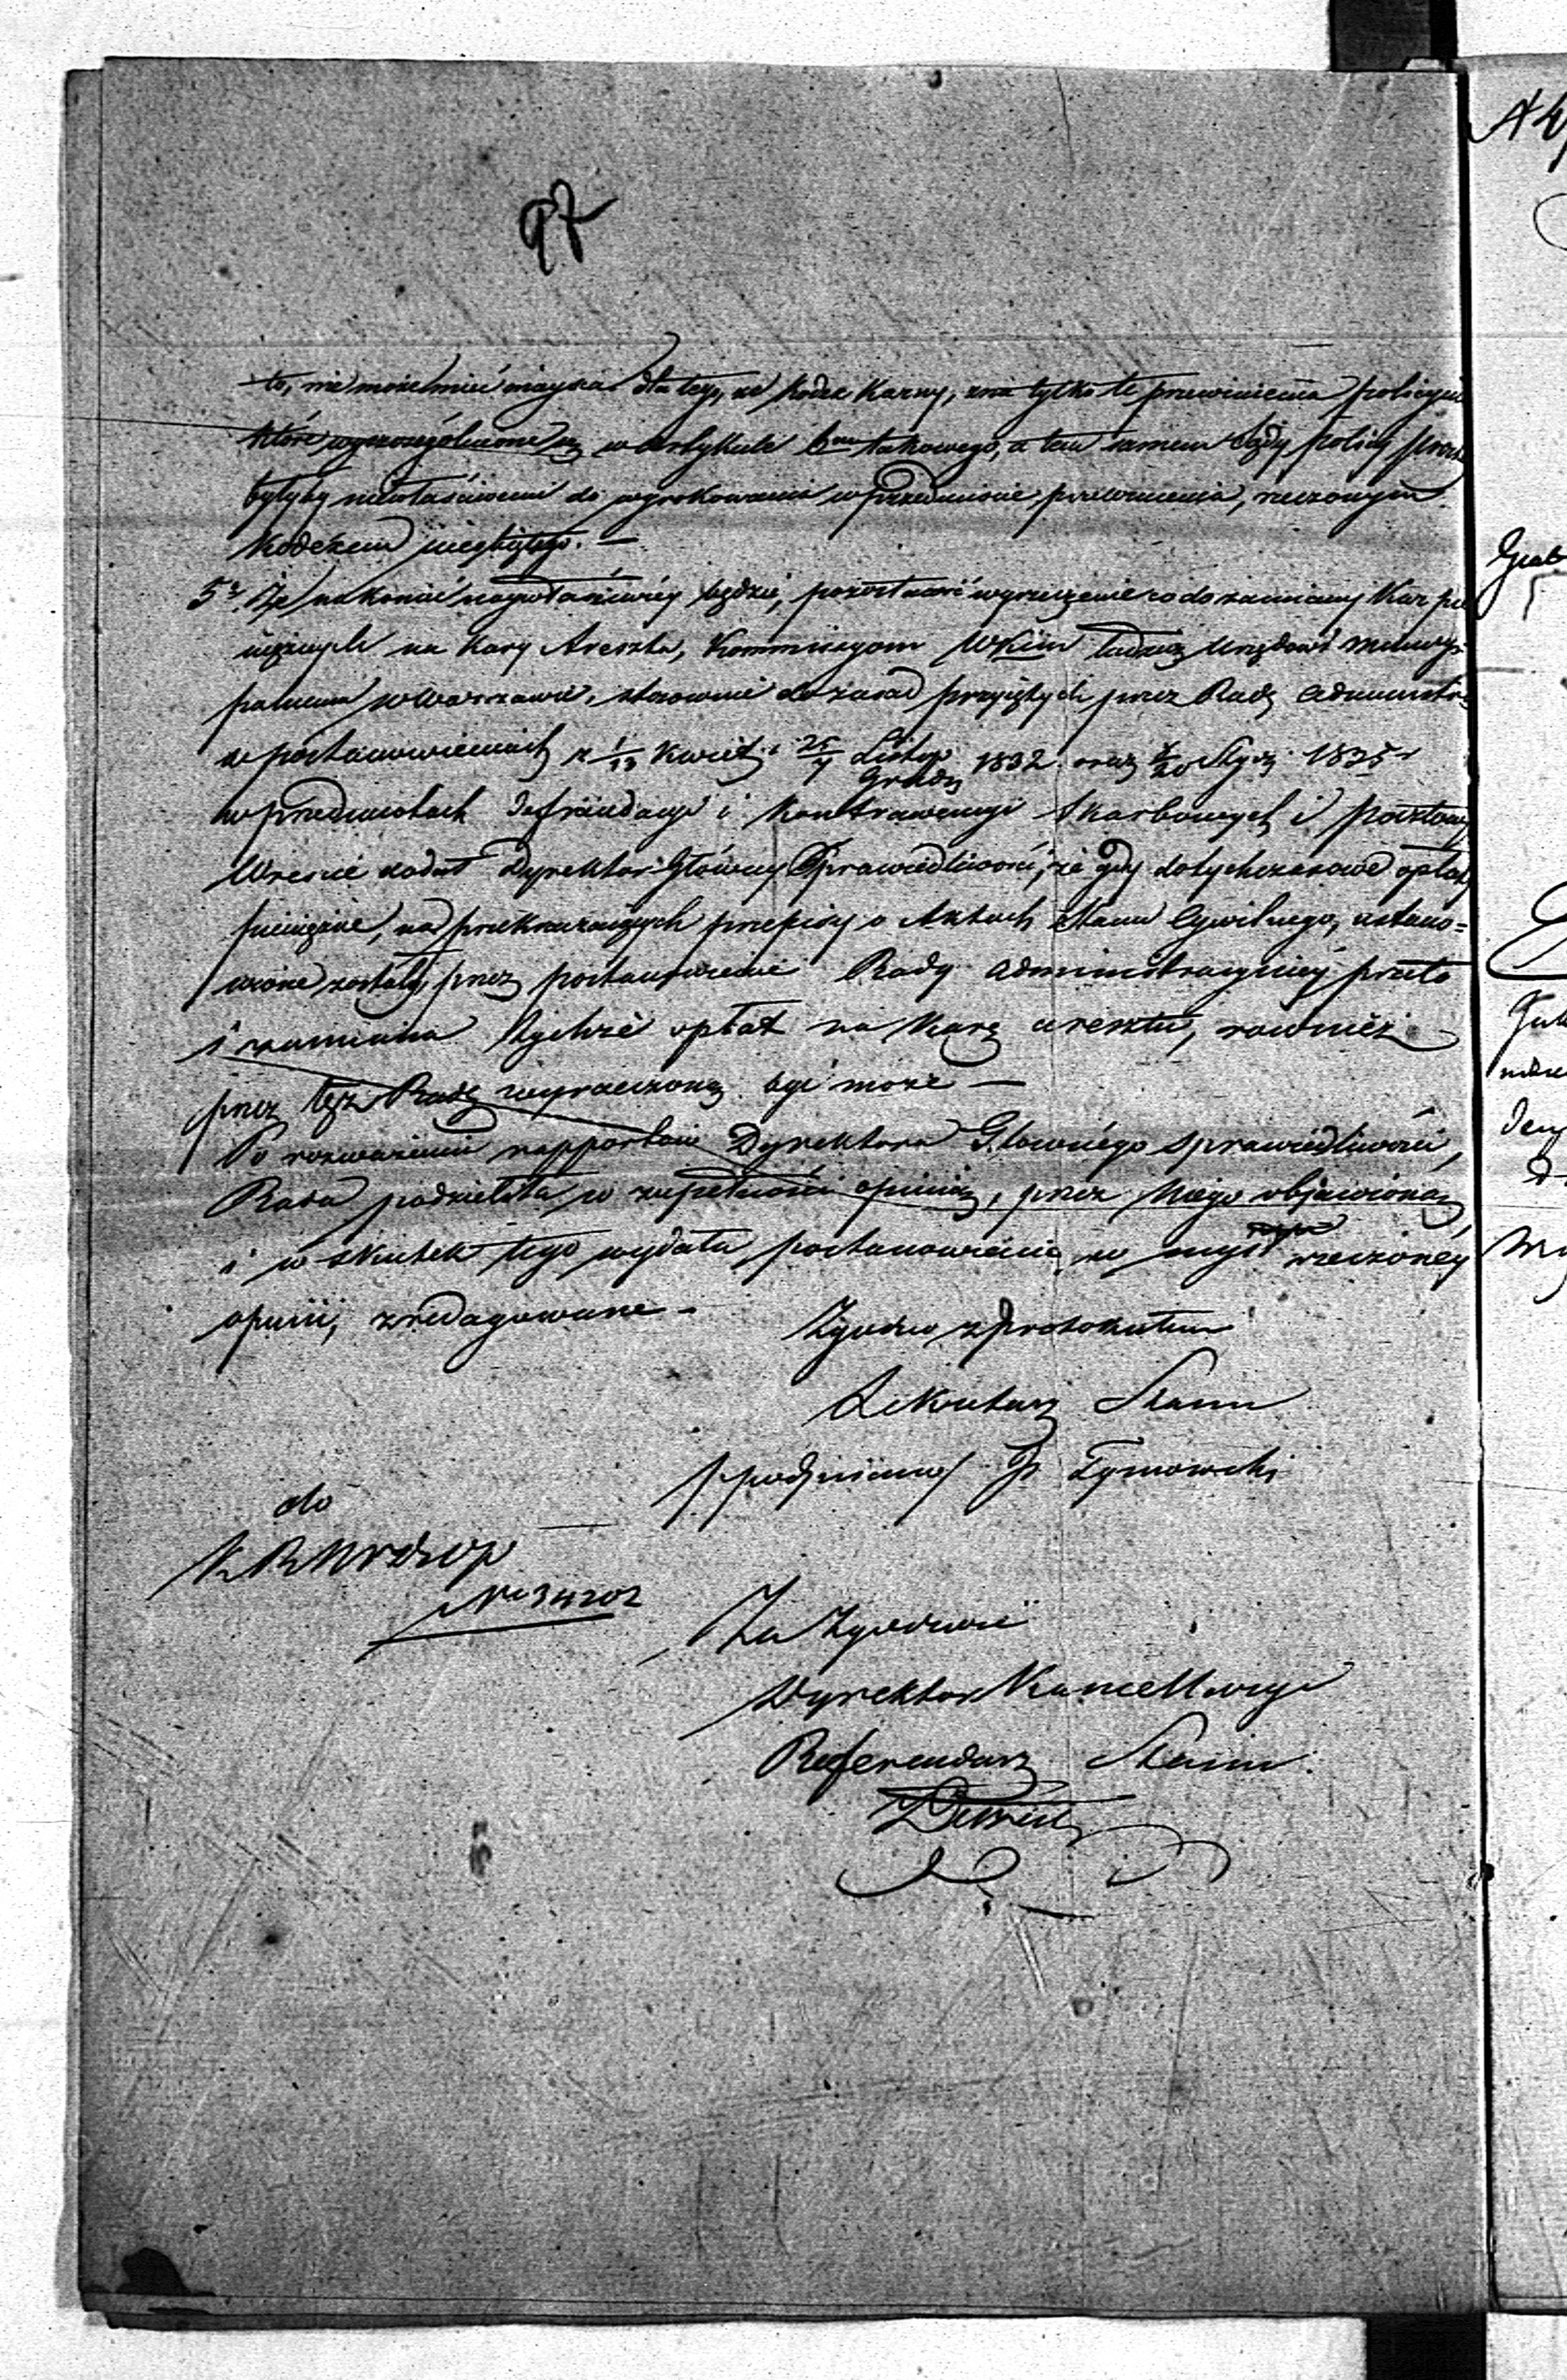 97
to, nie może mieć miejsca dla tego, że Kodex Karny, zna tylko te przewinienia policyjne
które wyszczególnione są w artykule takowego, a tem samem Sądy policyi prostey
byłyby niewłaściwemi do wyrokowania w przedmiocie przewinienia, rzeczonym
Kodexem nieobjętego. —
5e Że nakoniec naywłaściwiéy będzie, pozostawić wyrzeczenie co do zamiany Kar pie
niężnych na Kary Aresztu, Kommissyom WKim tudzież Urzędowi Municy-
palnemu w Warszawie, stosownie do zasad przyjętych przez Radę Administr:
w postanowieniach z 1/13 Kwiet. i 25/7 Listop. Grudn 1832 oraz 8/20 Stycz. 1835 r
w przedmiotach defraudacyi i Kontrawencyi Skarbowych i pocztowy
Wreszcie dodał Dyrektor Główny Sprawiedliwości, że gdy dotychczasowe opłaty
pieniężne, na przekraczających przepisy o Aktach Stanu Cywilnego, ustano=
wione zostały przez postanowienie Rady Administracyiney przeto
i zamiana tychże opłat na Karę aresztu, również
przez tęż Radę wyrzeczoną być może —
Po rozważeniu rapportu Dyrektora Głównego Sprawiedliwości,
Rada podzieliła w zupełności opinią, przez Niego objawioną,
i w skutek tego wydała postanowienie w myśl rzeczoney
opinii, zredagowane –
Zgodno z protokułem
Sekretarz Stanu
/podpisano/ J. Tymowski
do
K R S W D i O P
No 34202
Za Zgodność
Dyrektor Kancellaryi
Referendarz Stanu